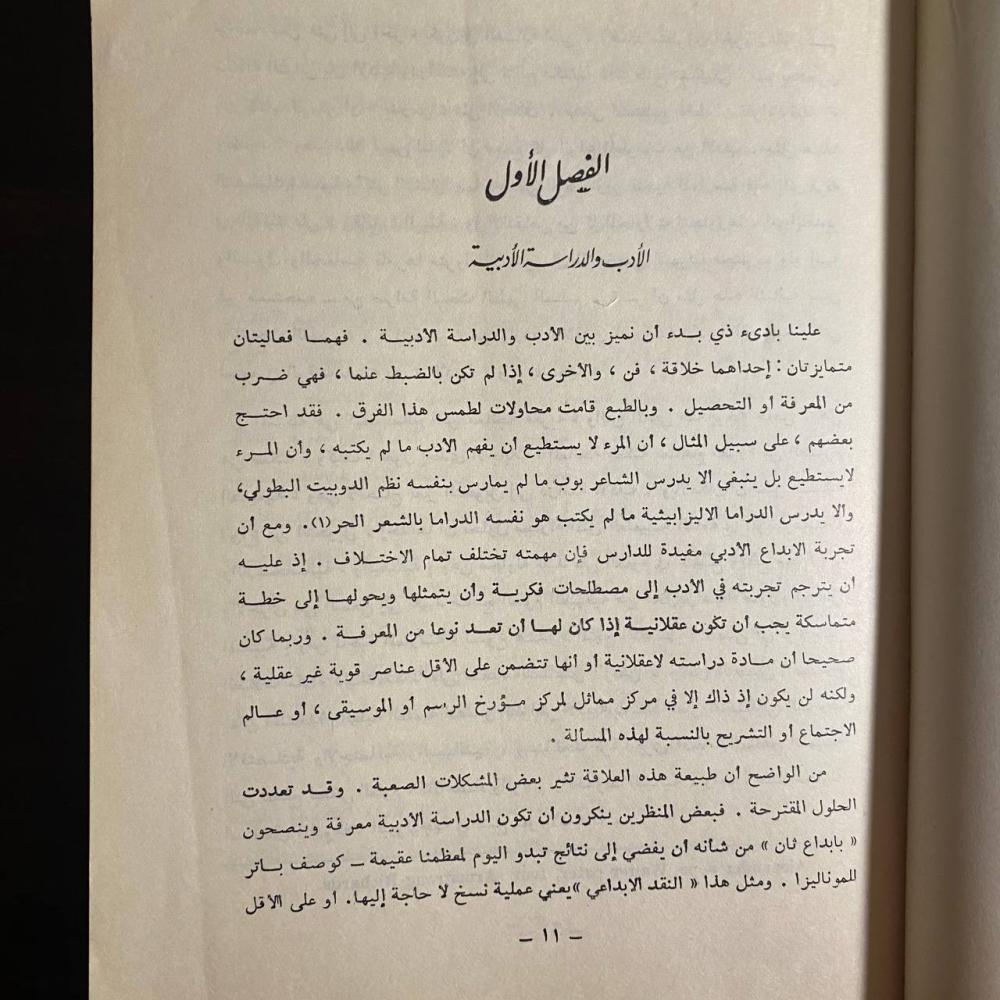 الفصل الأول
الأدب والدراسة الأدبية
علينا بادىء ذي بدء أن نميز بين الأدب والدراسة الأدبية . فهما فعاليتان
متمايزتان : إحداهما خلاقة ، فن ، والأخرى ، إذا لم تكن بالضبط عنما ، فهي ضرب
من المعرفة أو التحصيل . وبالطبع قامت محاولات لطمس هذا الفرق . فقد احتج
بعضهم ، على سبيل المثال ، أن المرء لا يستطيع أن يفهم الأدب ما لم يكتبه ، وأن المرء
لايستطيع بل ينبغي الا يدرس الشاعر بوب ما لم يمارس بنفسه نظم الدوبيت البطولي،
والا يدرس الدراما الاليزابيثية ما لم يكتب هو نفسه الدراما بالشعر الحر(١). ومع أن
تجربة الابداع الأدبي مفيدة للدارس فإن مهمته تختلف تمام الاختلاف . إذ عليه
أن يترجم تجربته في الأدب إلى مصطلحات فكرية وأن يتمثلها ويحولها إلى خطة
متماسكة يجب أن تكون عقلانية إذا كان لها أن تعد نوعا من المعرفة . وربما كان
صحيحا أن مادة دراسته لاعقلانية أو أنها تتضمن على الأقل عناصر قوية غير عقلية ،
ولكنه لن يكون إذ ذاك إلا في مركز مماثل لمركز مؤرخ الرسم أو الموسيقى ، أو عالم
الاجتماع أو التشريح بالنسبة لهذه المسألة .
من الواضح أن طبيعة هذه العلاقة تثير بعض المشكلات الصعبة . وقد تعددت
الحلول المقترحة . فبعض المنظرين ينكرون أن تكون الدراسة الأدبية معرفة وينصحون
« بابداع ثان » من شأنه أن يفضي إلى نتائج تبدو اليوم لمعظمنا عقيمة — كوصف باتر
للموناليزا . ومثل هذا « النقد الابداعي »يعني عملية نسخ لا حاجة إليها. أو على الأقل
— ١١ —